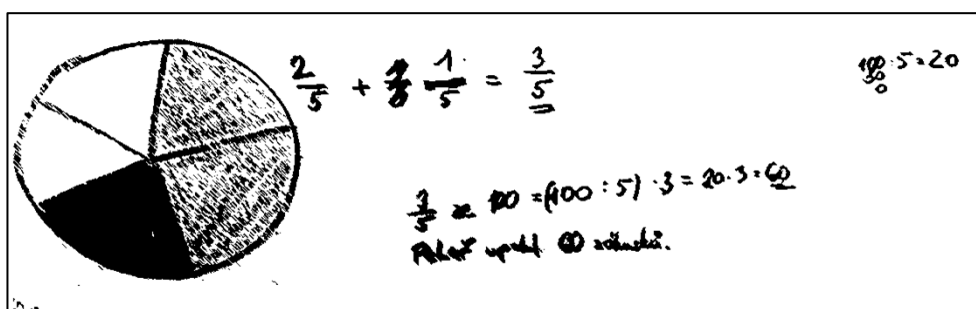 2/5 + 1/5 = 3/5
100 : 5 = 20
3/5 z 100 = (100 : 5) · 3 = 20 · 3 = 60
Pekař upekl 60